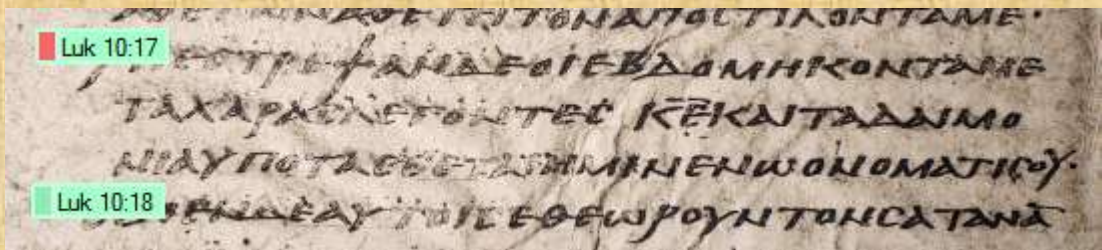 ΑΘΕΤΕΙΤΟΝΑΠΟCΤΙΛΟΝΤΑΜΕ·
Luk 10:17
ΠΕCΤΡΕΨΑΝΔΕΟΙΕΒΔΟΜΗΚΟΝΤΑΜΕ
ΤΑΧΑΡΑCΛΕΓΟΝΤΕC Κ̅Ε̅ΚΑΙΤΑΔΑΙΜΟ
ΝΙΑΥΠΟΤΑCCΕΤΑΙΗΜΙΝΕΝΩΟΝΟΜΑΤΙCΟΥ·
Luk 10:18
ΠΕΝΔΕΑΥΤΟΙC ΕΘΕΩΡΟΥΝΤΟΝCΑΤΑΝΑ̅